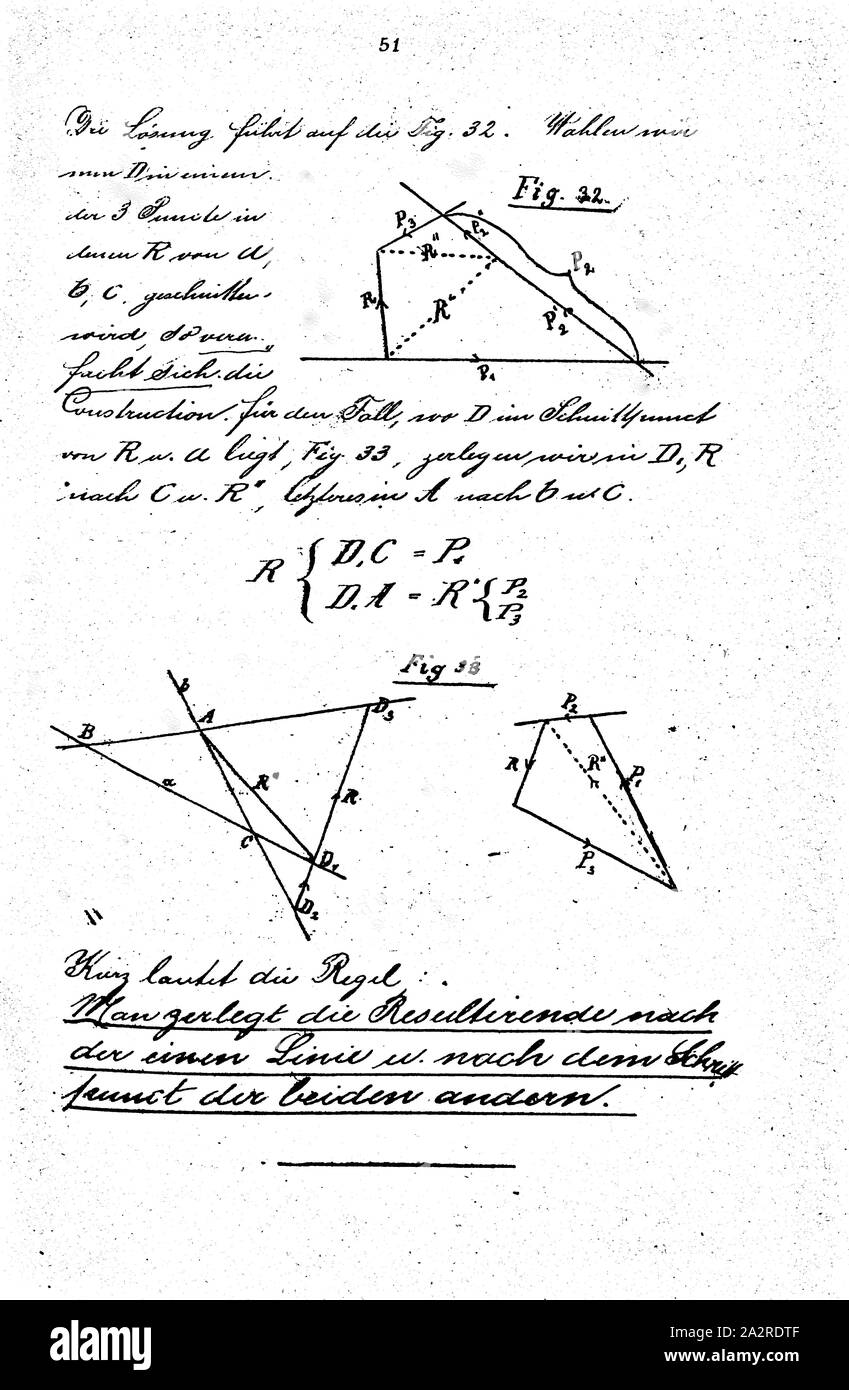 51
Die Lösung führt auf die Fig. 32. Wählen wir
nun D in einem
der 3 Puncte in
denen R von a,
b, c, geschnitten
wird, so verein-
facht sich die
Construction. Für den Fall, wo D im Schnittpunct
von R u. a liegt, Fig. 33, zerlegen wir in D₁, R
nach C u. R", letzteres in A nach b u. C.
Fig. 32.
P₃
P₂"
R"
P₂
R
R"
P₂'
P₁
R { D₁C = P₁
D₁A = R" { P₂
P₃
Fig 33
b
B
A
D₃
a
R"
R
C
D₁
D₂
P₂
R
R"
P₁
P₃
Kurz lautet die Regel:
Man zerlegt die Resultirende nach
der einen Linie u. nach dem Schnitt
punct der beiden andern.
alamy
a
alamy
Image ID: 2A2RDTF
www.alamy.com